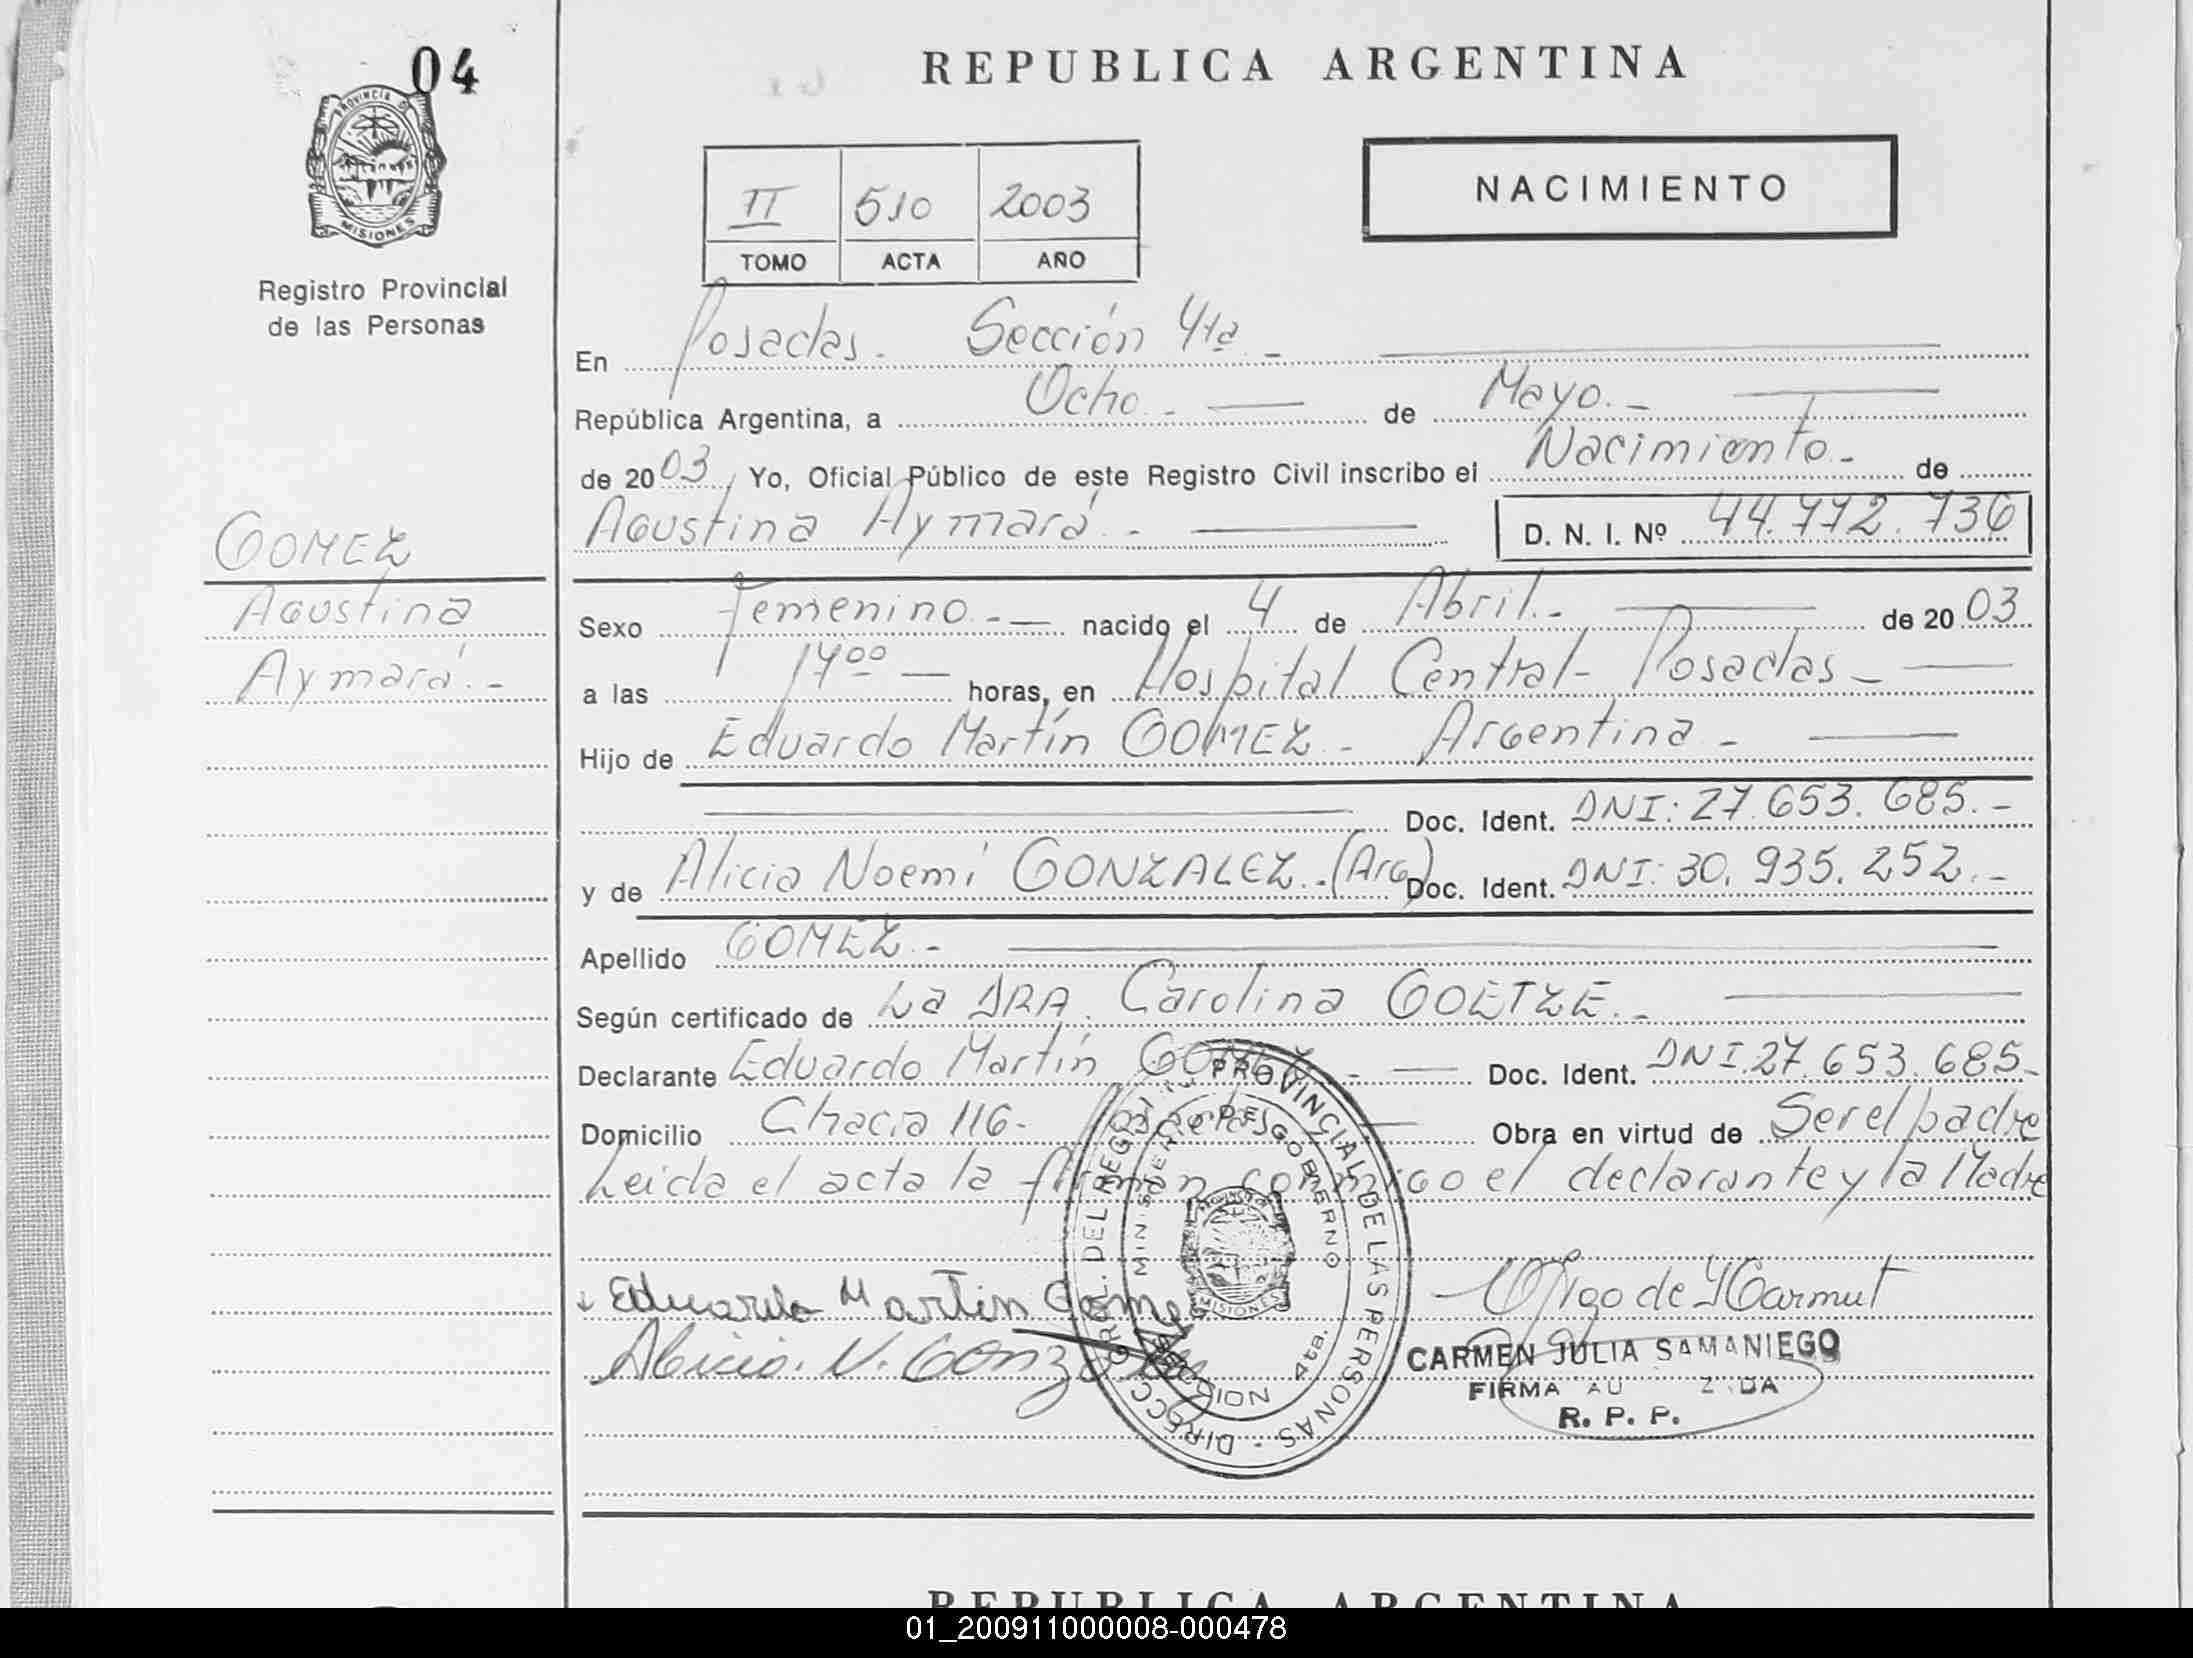 04
REPUBLICA ARGENTINA
PROVINCIA D
MISIONES
Registro Provincial
de las Personas
II 510 2003
TOMO ACTA AÑO
NACIMIENTO
En Posadas. Sección 4ta -
República Argentina, a Ocho. - de Mayo. -
de 2003, Yo, Oficial Público de este Registro Civil inscribo el Nacimiento. - de
Agustina Aymará. - D. N. I. Nº 44.772.736
GOMEZ
Agustina
Aymará. -
Sexo Femenino. - nacido el 4 de Abril. - de 2003
a las 17⁰⁰ horas, en Hospital Central - Posadas -
Hijo de Eduardo Martín GOMEZ. - Argentina -
Doc. Ident. DNI: 27.653.685. -
y de Alicia Noemí GONZALEZ. - (Arg) Doc. Ident. DNI: 30.935.252. -
Apellido GOMEZ. -
Según certificado de La DRA. Carolina GOETZE. -
Declarante Eduardo Martín GOMEZ - Doc. Ident. DNI.27.653.685 -
Domicilio Chacra 116 - Posadas Obra en virtud de Ser el padre
Leida el acta la firman conmigo el declarante y la Madre
Eduardo Martin Gomez
Alicia. N. Gonzalez
DIRECC. GRAL. DEL REGISTRO PROVINCIAL DE LAS PERSONAS -
MINISTERIO DE GOBIERNO
MISIONES
SECCION 4ta.
CARMEN JULIA SAMANIEGO
FIRMA AU Z DA
R. P. P.
REPUBLICA ARGENTINA
01_200911000008-000478